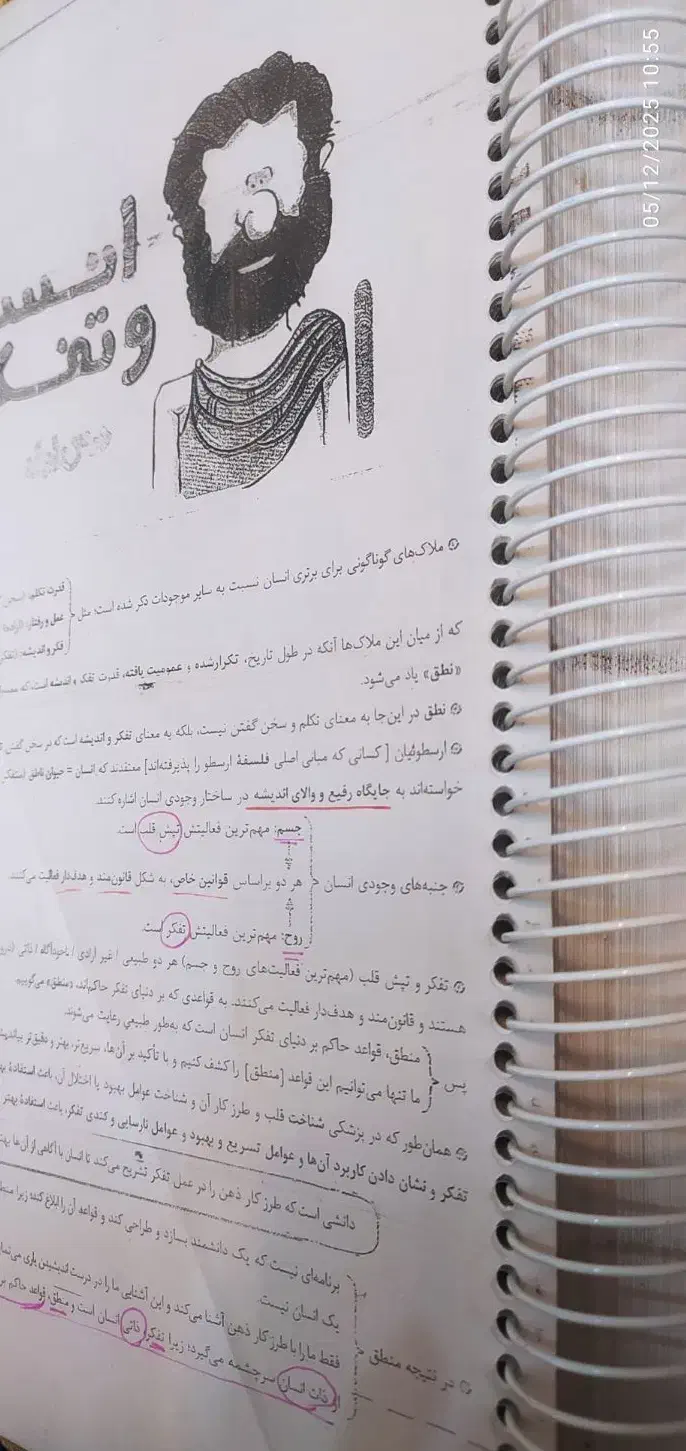 05/12/2025 10:55
انس
وتفک
درس اول
ملاک‌های گوناگونی برای برتری انسان نسبت به سایر موجودات ذکر شده است؛ مثل
قدرت تکلم
عمل و رفتار
فکر و اندیشه
که از میان این ملاک‌ها آنکه در طول تاریخ، تکرارشده و عمومیت یافته، قدرت تفکر و اندیشه است، که
«نطق» یاد می‌شود.
نطق در این‌جا به معنای تکلم و سخن گفتن نیست، بلکه به معنای تفکر و اندیشه است که در سخن گفتن
ارسطوئیان [کسانی که مبانی اصلی فلسفهٔ ارسطو را پذیرفته‌اند] معتقدند که انسان = حیوان ناطق
خواسته‌اند به جایگاه رفیع و والای اندیشه در ساختار وجودی انسان اشاره کنند.
جسم: مهم‌ترین فعالیتش تپش قلب است.
جنبه‌های وجودی انسان هر دو براساس قوانین خاص، به شکل قانون‌مند و هدف‌دار فعالیت می‌کنند.
روح: مهم‌ترین فعالیتش تفکر است.
تفکر و تپش قلب (مهم‌ترین فعالیت‌های روح و جسم) هر دو طبیعی / غیر ارادی / ناخودآگاه / ذاتی
هستند و قانون‌مند و هدف‌دار فعالیت می‌کنند. به قواعدی که بر دنیای تفکر حاکم‌اند، «منطق» می‌گوییم.
پس
منطق، قواعد حاکم بر دنیای تفکر انسان است که به‌طور طبیعی رعایت می‌شوند.
ما تنها می‌توانیم این قواعد [منطق] را کشف کنیم و با تأکید بر آن‌ها، سریع‌تر، بهتر و دقیق‌تر
همان‌طور که در پزشکی شناخت قلب و طرز کار آن و شناخت عوامل بهبود یا اختلال آن، باعث استفادهٔ
تفکر و نشان دادن کاربرد آن‌ها و عوامل تسریع و بهبود و عوامل نارسایی و کندی تفکر، باعث استفادهٔ بهتر
دانشی است که طرز کار ذهن را در عمل تفکر تشریح می‌کند تا انسان با آگاهی از آن‌ها
در نتیجه منطق
برنامه‌ای نیست که یک دانشمند بسازد و طراحی کند و قواعد آن را ابلاغ کند؛ زیرا
یک انسان نیست.
فقط ما را با طرز کار ذهن آشنا می‌کند و این آشنایی ما را در درست اندیشیدن یاری
از ذات انسان سرچشمه می‌گیرد؛ زیرا تفکر، ذاتی انسان است و منطق، قواعد حاکم بر